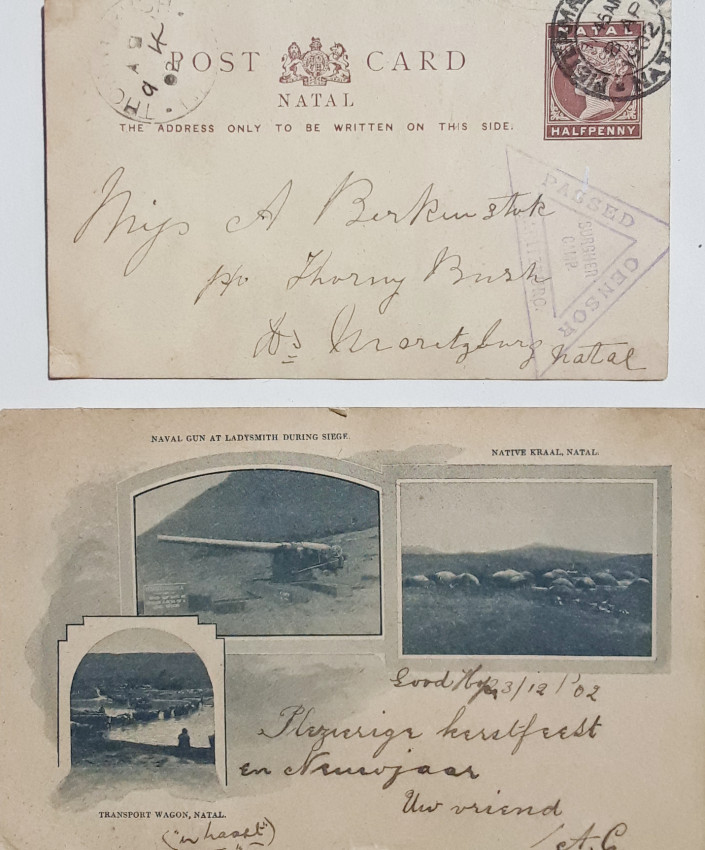 POST CARD
NATAL
THE ADDRESS ONLY TO BE WRITTEN ON THIS SIDE.
NATAL
HALFPENNY
AP
02
NATAL
AP
9
02
PASSED
CENSOR
BURGHER
CAMP.
Miss A Berkenstok
po Thorny Bush
Ds Moritzburg Natal
NAVAL GUN AT LADYSMITH DURING SIEGE.
NATIVE KRAAL, NATAL.
TRANSPORT WAGON, NATAL.
Good Hope 23/12/02
Plezierige kerstfeest
en Nieuwjaar
Uw vriend
A.C
("in haast")